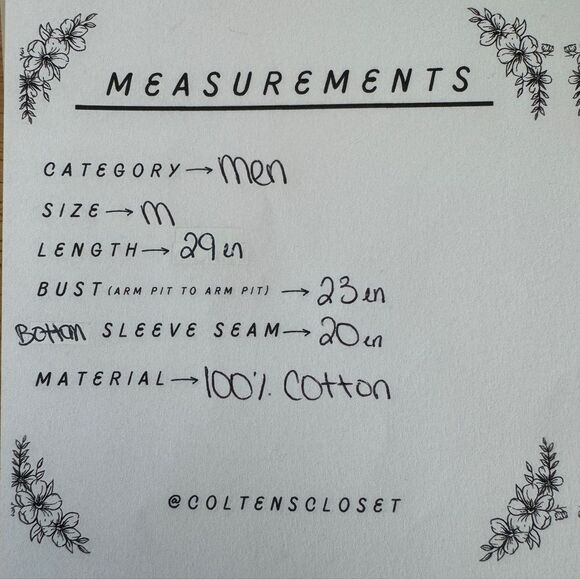 MEASUREMENTS
CATEGORY → Men
SIZE → M
LENGTH → 29 in
BUST (ARM PIT TO ARM PIT) → 23 in
Bottom SLEEVE SEAM → 20 in
MATERIAL → 100% Cotton
@COLTENSCLOSET